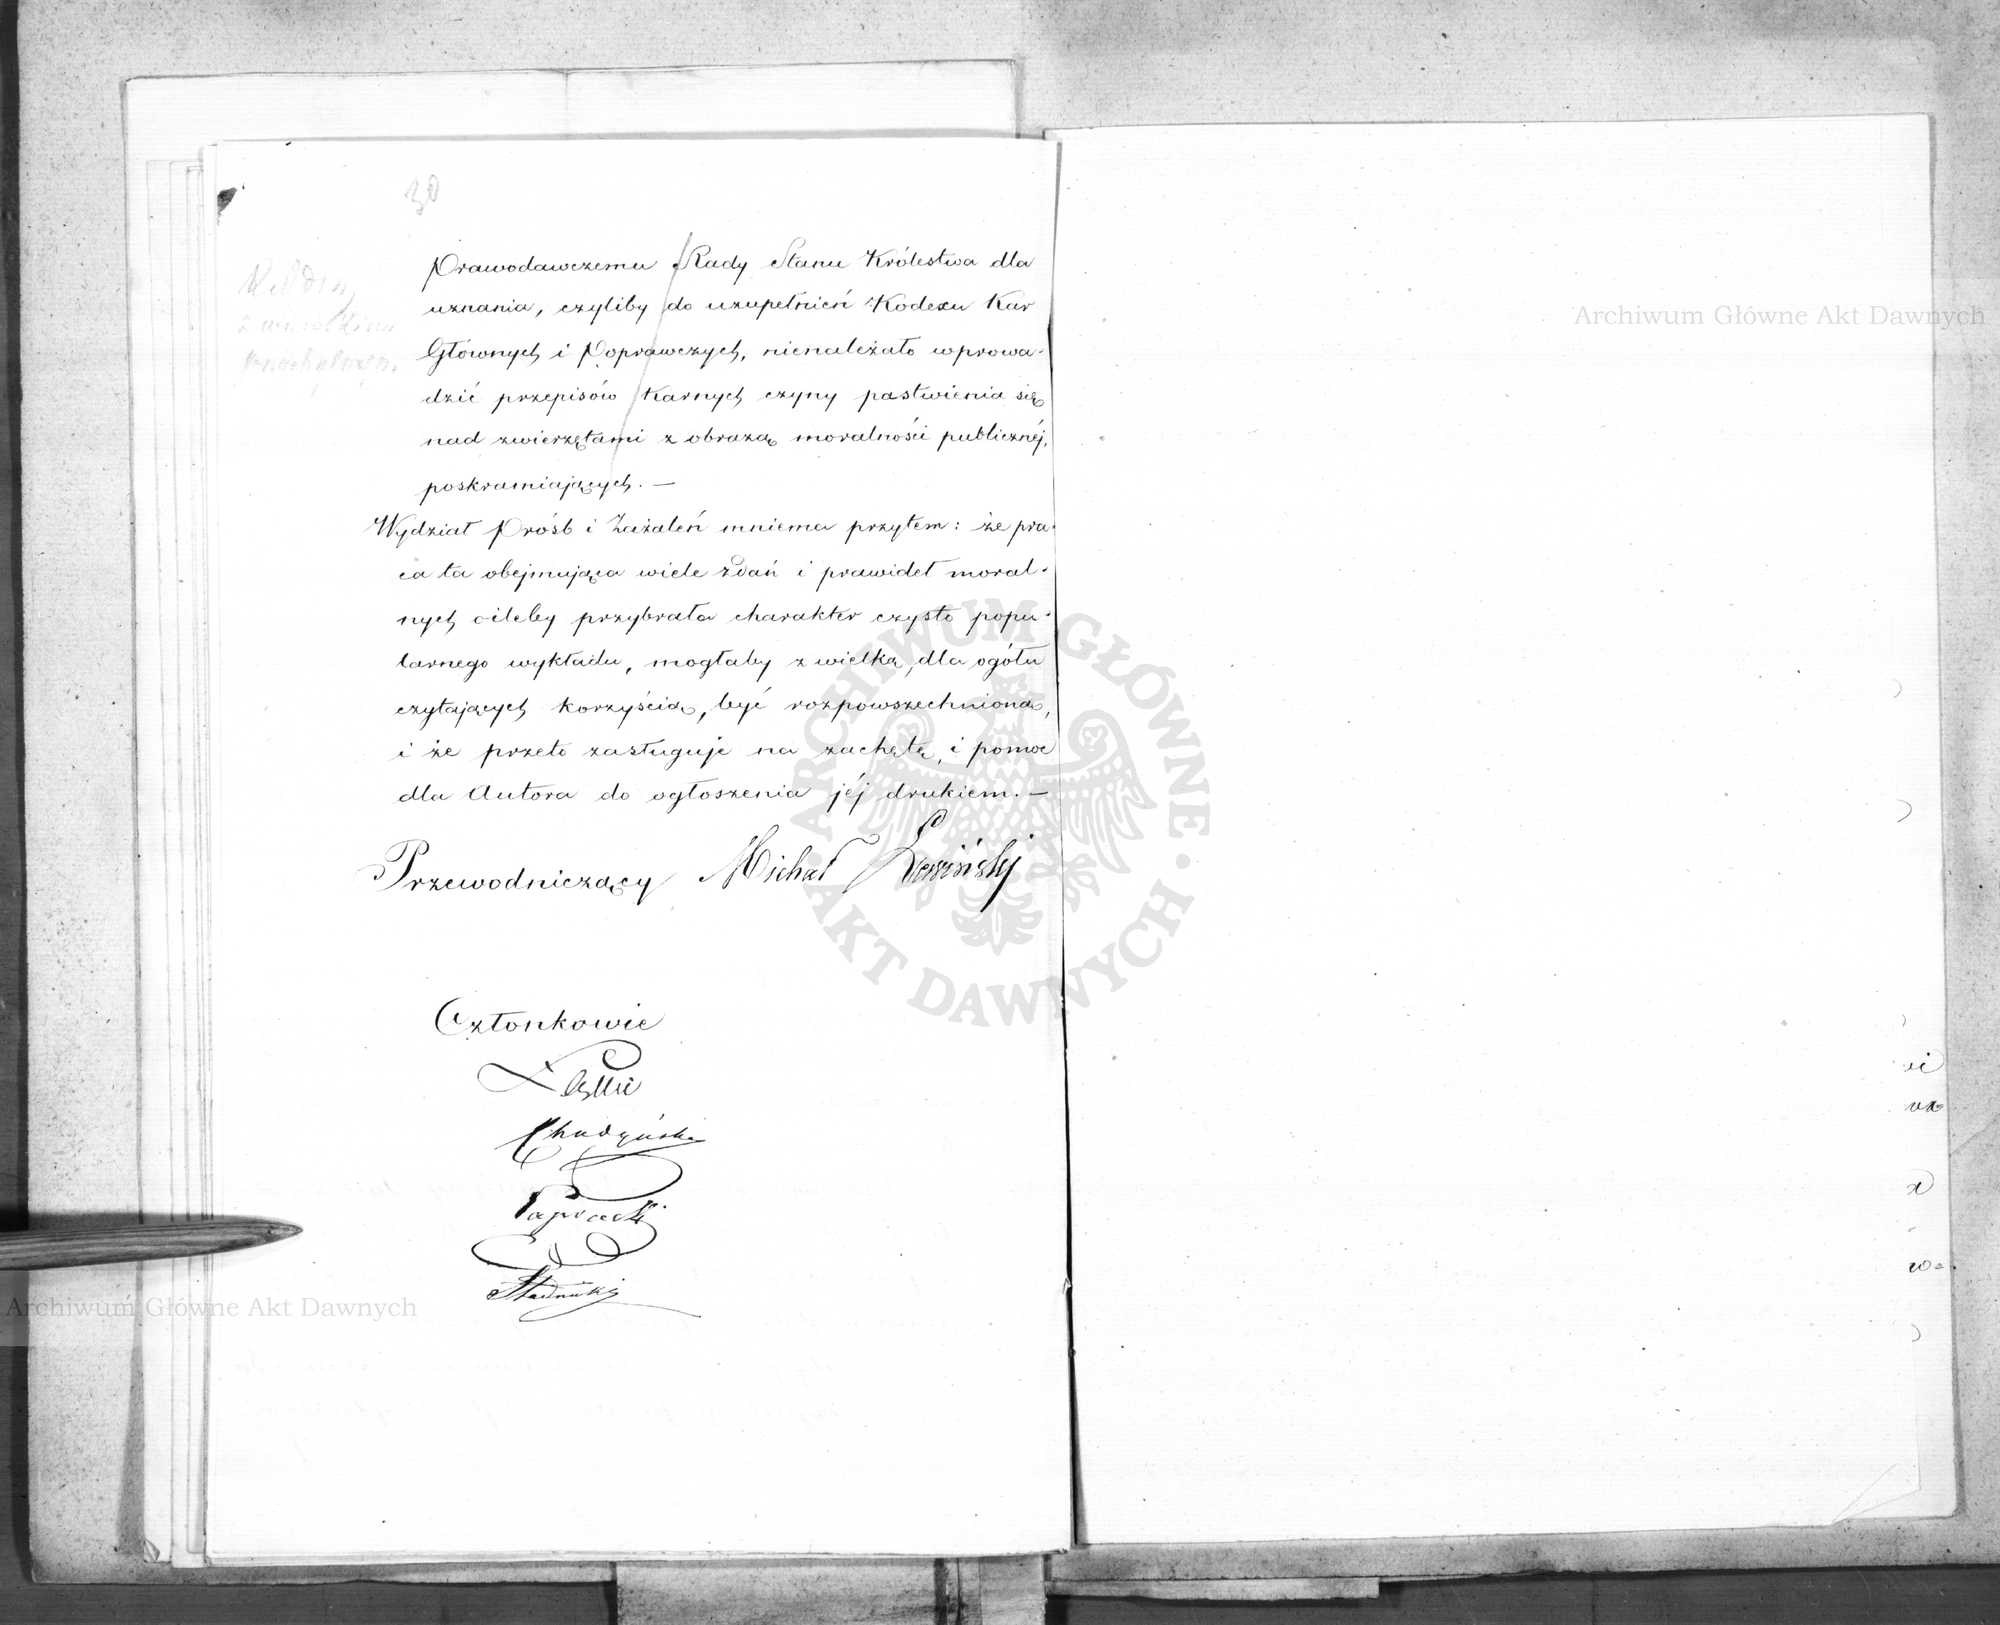 30
Prawodawczemu Rady Stanu Królestwa dla
uznania, czyliby do uzupełnień Kodexu Kar
Głównych i Poprawczych, nienależało wprowa-
dzić przepisów karnych czyny pastwienia się
nad zwierzętami z obrazą moralności publicznéj,
poskramiających. —
Wydział Próśb i Zażaleń mniema przytem: że pra-
ca ta obejmująca wiele zdań i prawideł moral-
nych oileby przybrała charakter czysto popu-
larnego wykładu, mogłaby z wielką, dla ogółu
czytających korzyścią, być rozpowszechnioną,
i że przeto zasługuje na zachętę, i pomoc
dla Autora do ogłoszenia jéj drukiem. —
Przewodniczący Michał
Członkowie
Chudzyński
Paprocki
Archiwum Główne Akt Dawnych
ARCHIWUM GŁÓWNE AKT DAWNYCH
Archiwum Główne Akt Dawnych